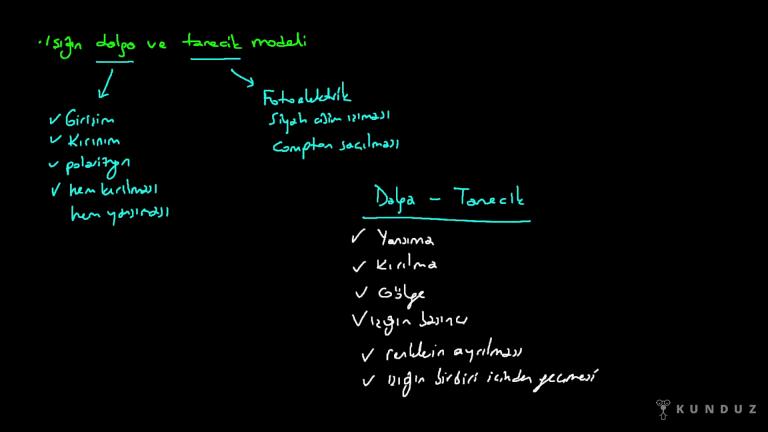 Işığın dalga ve tanecik modeli
Girişim
Kırınım
polarizyon
hem kırılması
hem yansıması
Fotoelektrik
Siyah cisim ışıması
Compton saçılması
Dalga - Tanecik
Yansıma
Kırılma
Gölge
ışığın basıncı
renklerin ayrılması
ışığın birbiri içinden geçmesi
KUNDUZ